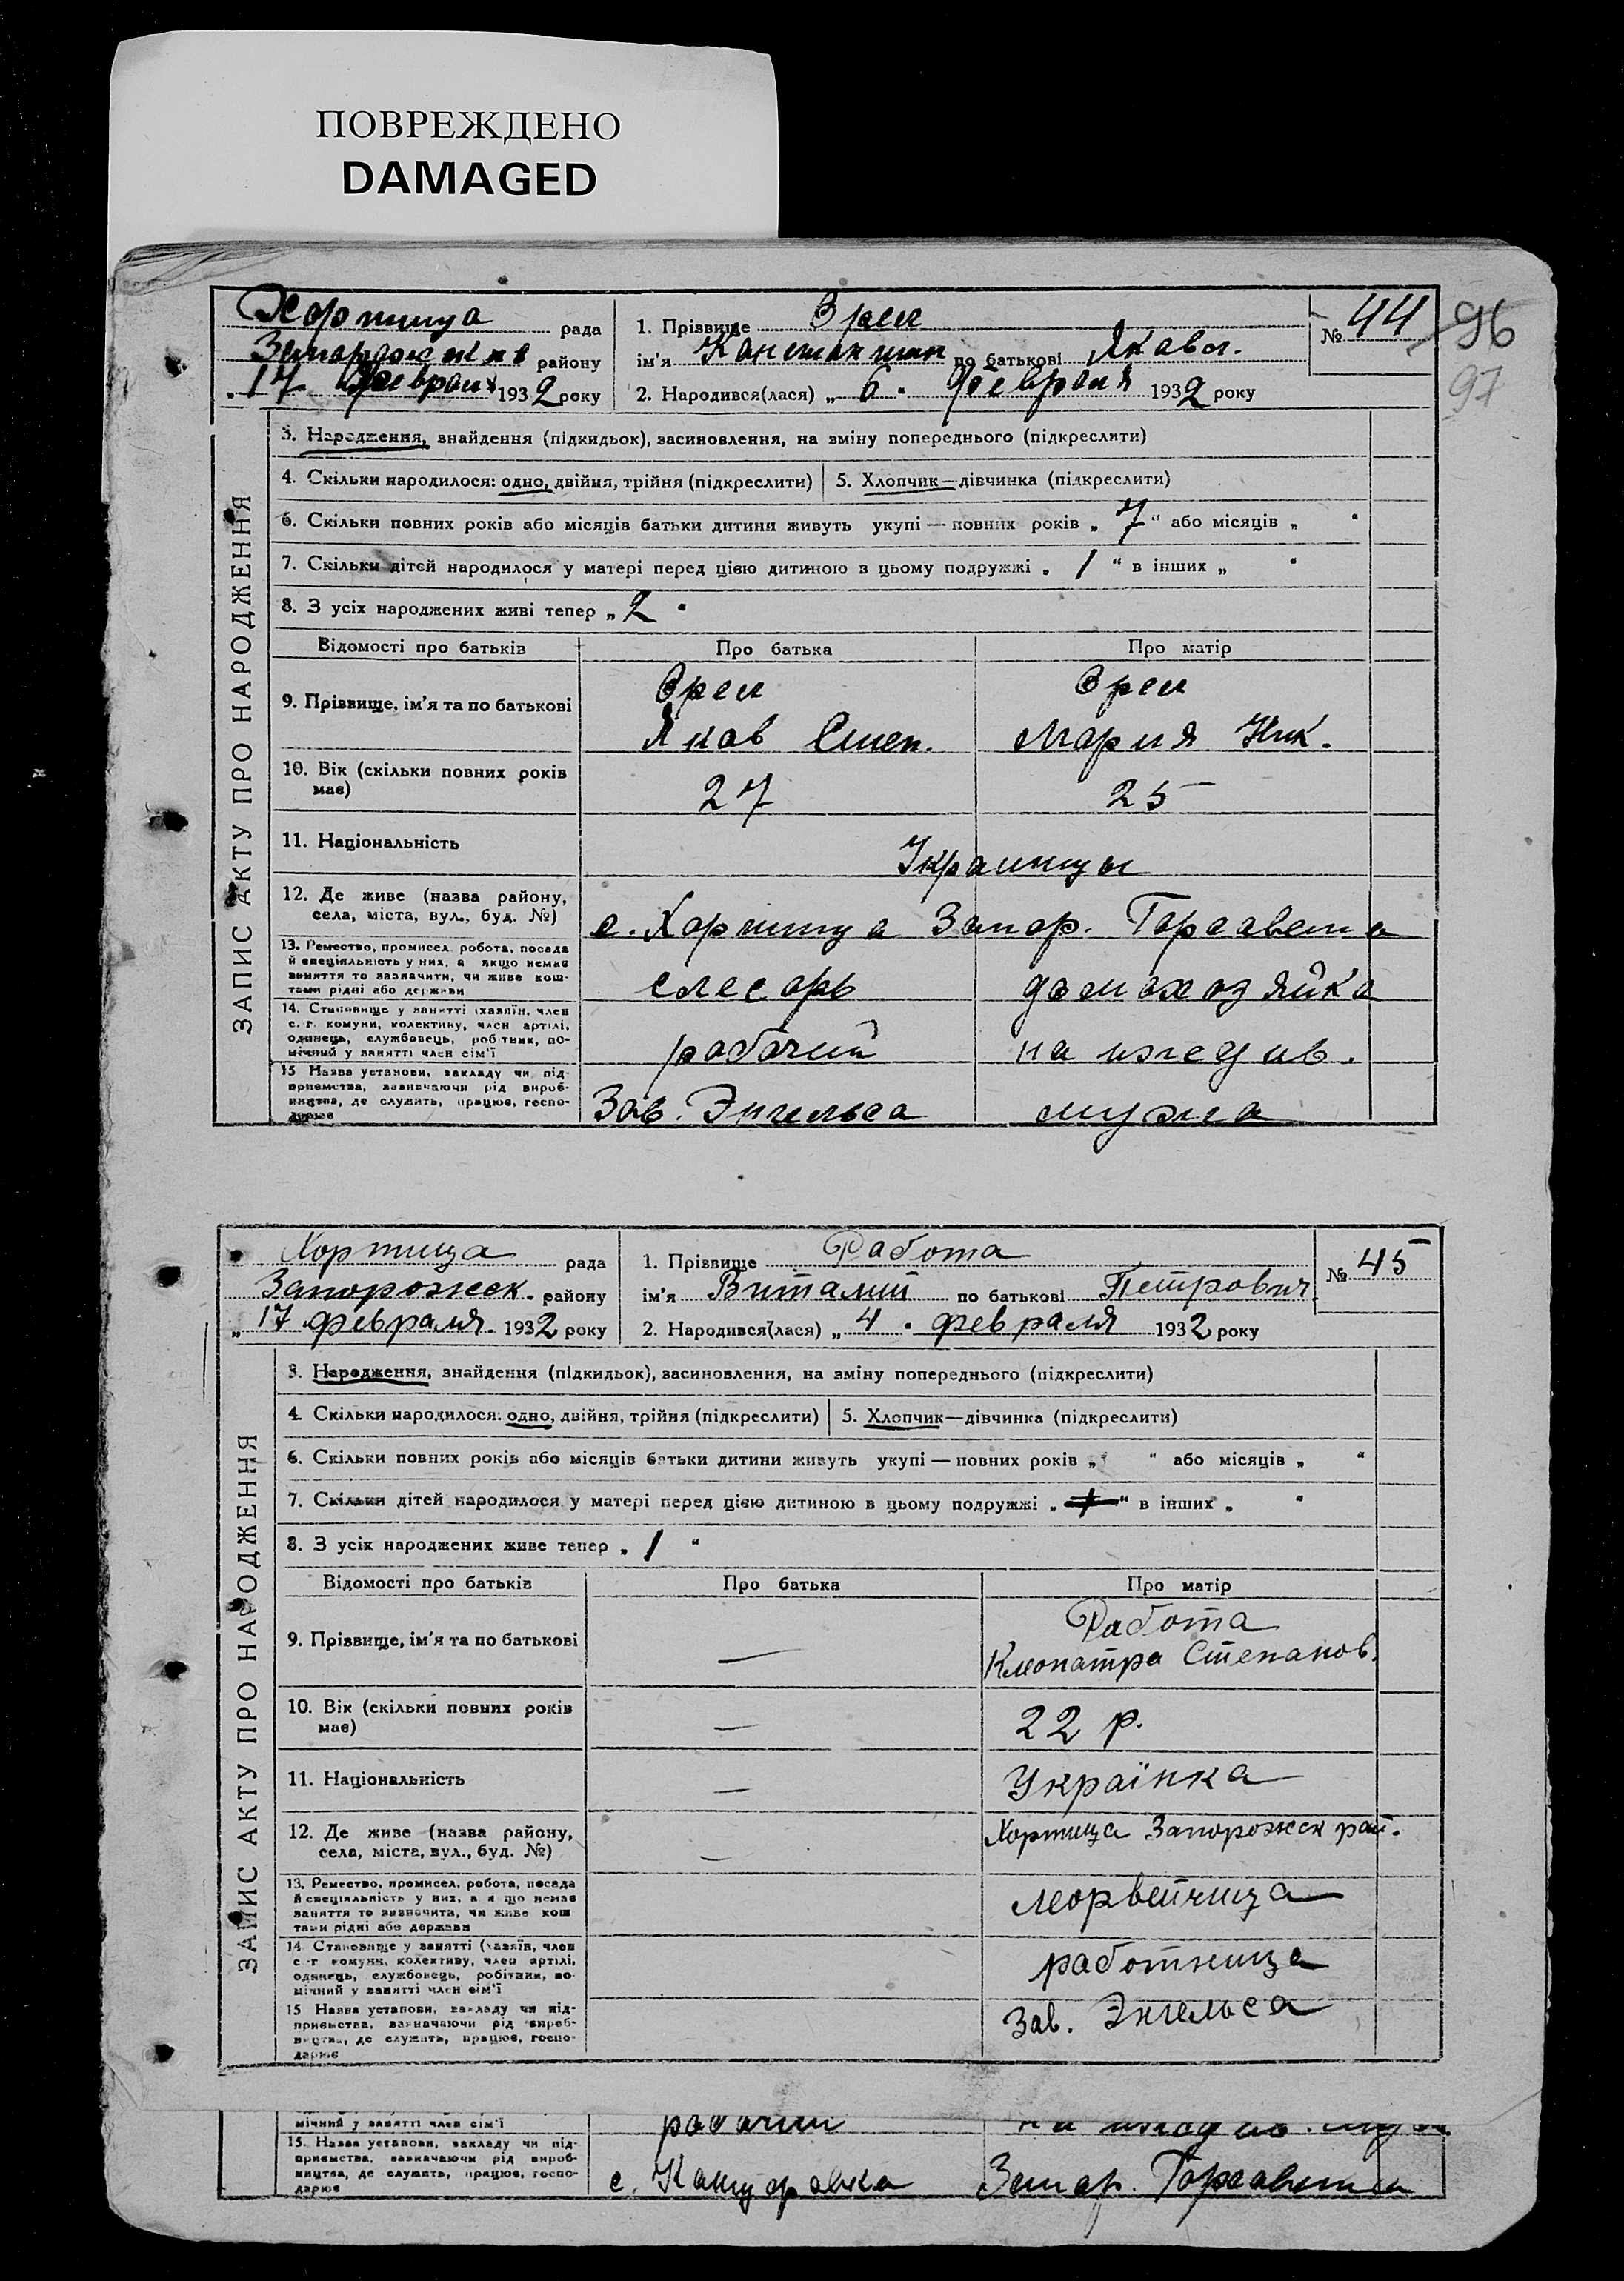 ПОВРЕЖДЕНО
DAMAGED
Хортица рада
району
17 февраля 1932 року
1. Прізвище
ім'я Константин по батькові Яковл.
2. Народився(лася) „ 6 " февраля 1932 року
№ 44
96
97
ЗАПИС АКТУ ПРО НАРОДЖЕННЯ
3. Народження, знайдення (підкидьок), засиновлення, на зміну попереднього (підкреслити)
4. Скільки народилося: одно, двійня, трійня (підкреслити) 5. Хлопчик—дівчинка (підкреслити)
6. Скільки повних років або місяців батьки дитини живуть укупі — повних років „ 7 " або місяців „ "
7. Скільки дітей народилося у матері перед цією дитиною в цьому подружжі „ 1 " в інших „ "
8. З усіх народжених живі тепер „ 2 "
Відомості про батьків Про батька Про матір
9. Прізвище, ім'я та по батькові
Яков Степ. Мария Ник.
10. Вік (скільки повних років
має) 27 25
11. Національність
Украинцы
12. Де живе (назва району,
села, міста, вул., буд. №) с. Хортица Запор. Горсовета
13. Ремество, промисел, робота, посада
й спеціяльність у них, а якщо немає
заняття то зазначити, чи живе кош-
тами рідні або держави слесарь домохозяйка
14. Становище у занятті (хазяїн, член
с.-г. комуни, колективу, член артілі,
одинець, службовець, робітник, по-
мічний у занятті член сім'ї рабочий на иждив.
15 Назва установи, закладу чи під-
приємства, зазначаючи рід вироб-
ництва, де служить, працює, госпо-
дарює Зав. Энгельса мужа
Хортица рада
Запорожск. району
„ 17 февраля. 1932 року
1. Прізвище Работа
ім'я Виталий по батькові Петрович
2. Народився(лася) „ 4 " февраля 1932 року
№ 45
ЗАПИС АКТУ ПРО НАРОДЖЕННЯ
3. Народження, знайдення (підкидьок), засиновлення, на зміну попереднього (підкреслити)
4. Скільки народилося: одно, двійня, трійня (підкреслити) 5. Хлопчик—дівчинка (підкреслити)
6. Скільки повних років або місяців батьки дитини живуть укупі — повних років „ " або місяців „ "
7. Скільки дітей народилося у матері перед цією дитиною в цьому подружжі „ 1 " в інших „ "
8. З усіх народжених живе тепер „ 1 "
Відомості про батьків Про батька Про матір
Работа
9. Прізвище, ім'я та по батькові — Клеопатра Степанов.
10. Вік (скільки повних років
має) — 22 р.
11. Національність — Українка
12. Де живе (назва району,
села, міста, вул., буд. №) — Хортица Запорожск рай.
13. Ремество, промисел, робота, посада
й спеціяльність у них, а якщо немає
заняття то зазначити, чи живе кош
тами рідні або держави
14. Становище у занятті (хазяїн, член
с.-г комуни, колективу, член артілі,
одинець, службовець, робітник, по-
мічний у занятті член сім'ї работница
15 Назва установи, закладу чи під-
приємства, зазначаючи рід вироб-
ництва, де служить, працює, госпо-
дарює Зав. Энгельса
мічний у занятті член сім'ї рабочий на иждив.
15. Назва установи, закладу чи під-
приємства, зазначаючи рід вироб-
ництва, де служить, працює, госпо-
дарює с. Запор. Горсовета